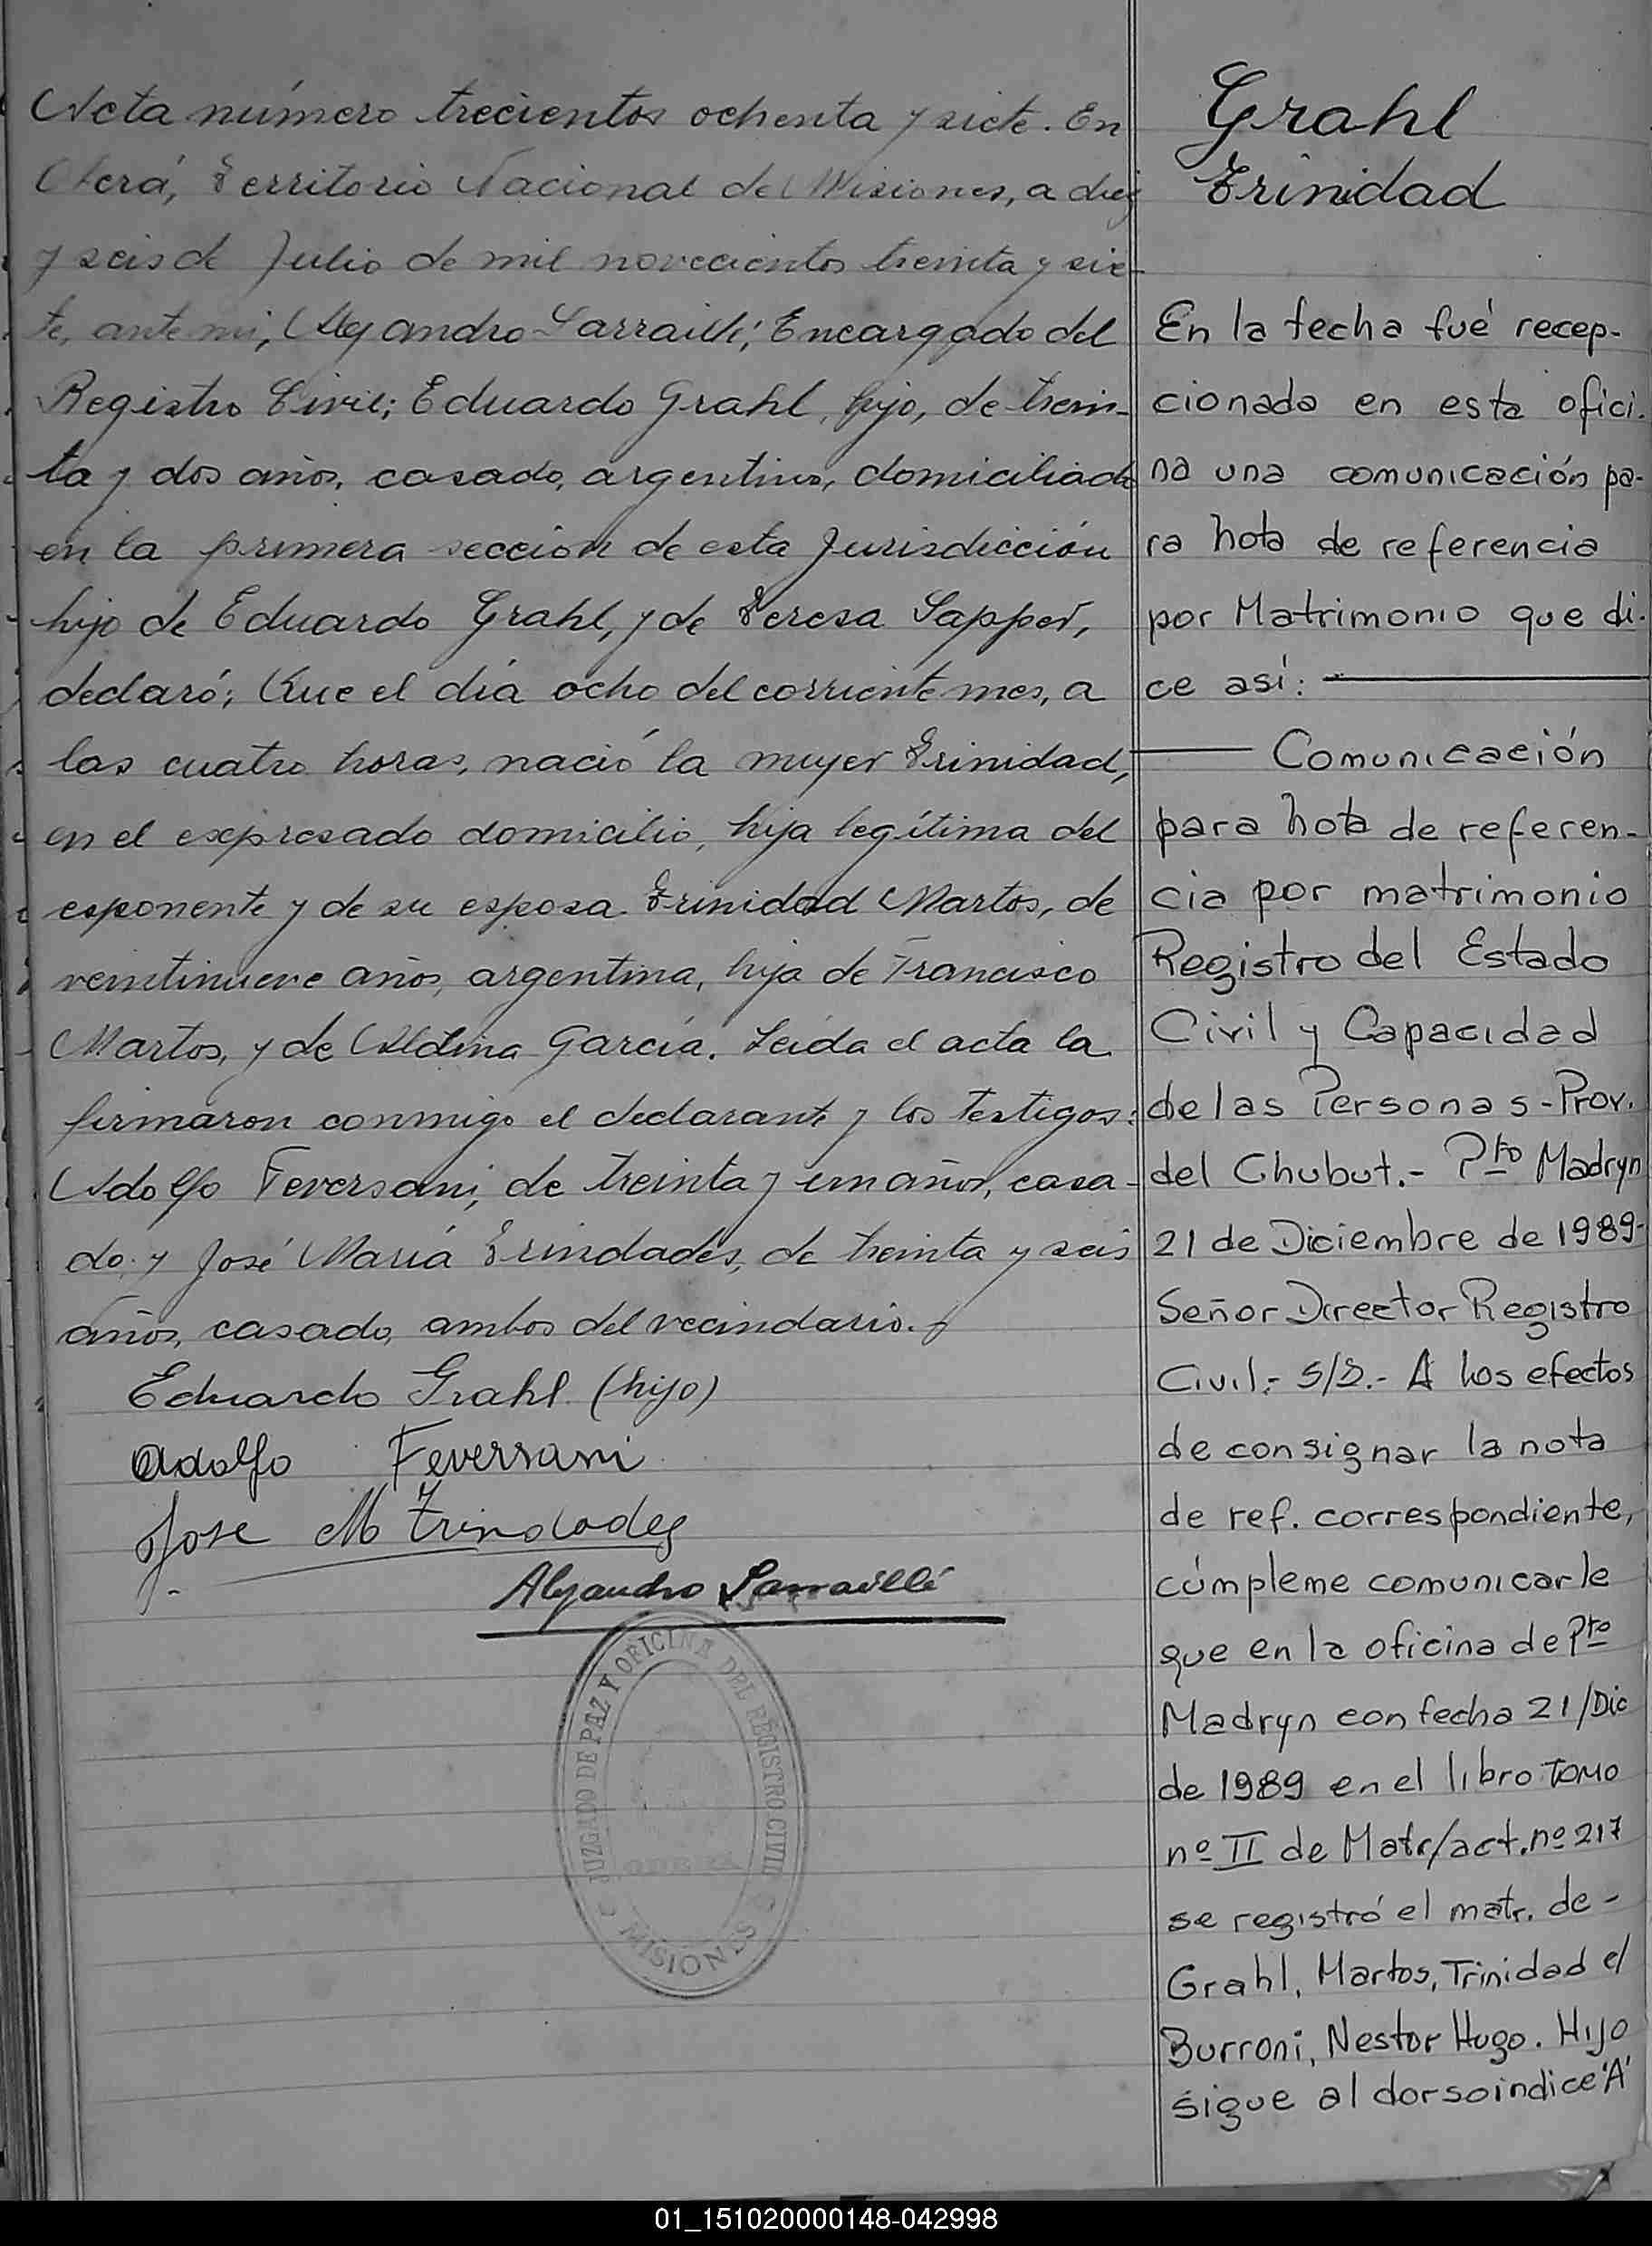 Acta número trecientos ochenta y siete. En
Oberá, Territorio Nacional de Misiones, a diez
y seis de Julio de mil novecientos treinta y sie-
te, ante mi, Alejandro Sarraillé; Encargado del
Registro Civil; Eduardo Grahl, hijo, de trein-
ta y dos años, casado, argentino, domiciliado
en la primera sección de esta Jurisdicción
hijo de Eduardo Grahl, y de Teresa Sapper,
declaró; Que el día ocho del corriente mes, a
las cuatro horas, nació la mujer Trinidad,
en el expresado domicilio, hija legítima del
esponente y de su esposa Trinidad Martos, de
veintinueve años, argentina, hija de Francisco
Martos, y de Aldina García. Leída el acta la
firmaron conmigo el declarante y los testigos:
Adolfo Feversani, de treinta y un años, casa-
do, y José María Trindades, de treinta y seis
años, casado, ambos del vecindario.
Eduardo Grahl (hijo)
Adolfo Feversani
Jose M Trindades
Alejandro Sarraillé
JUZGADO DE PAZ Y OFICINA DEL REGISTRO CIVIL
MISIONES
Grahl
Trinidad
En la fecha fué recep-
cionada en esta ofici-
na una comunicación pa-
ra nota de referencia
por Matrimonio que di-
ce así:
Comunicación
para nota de referen-
cia por matrimonio
Registro del Estado
Civil y Capacidad
de las Personas - Prov.
del Chubut.- Pto Madryn
21 de Diciembre de 1989-
Señor Director Registro
Civil.- S/D.- A los efectos
de consignar la nota
de ref. correspondiente,
cúmpleme comunicarle
que en la oficina de Pto
Madryn con fecha 21/Dic
de 1989 en el libro TOMO
nº II de Matr/act. nº 217
se registró el matr. de-
Grahl, Martos, Trinidad c/
Burroni, Nestor Hugo. Hijo
sigue al dorso indice 'A'
01_151020000148-042998